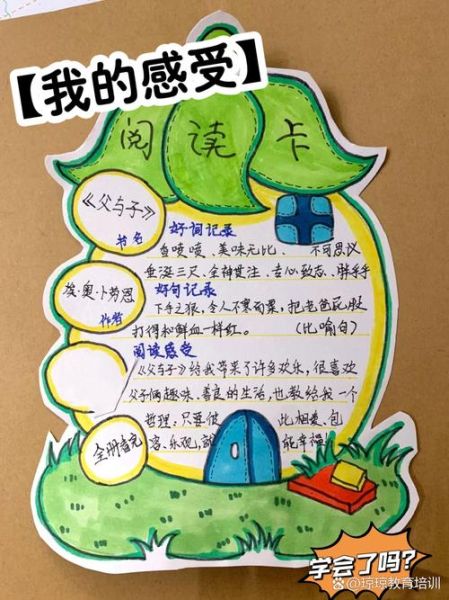 【我的感受】
阅读卡
《父与子》
书名
好词记录
香喷喷、美味无比、 不可思议
垂涎三尺、全神贯注、专心致志、胖乎乎
埃·奥·卜劳恩
作者
好句记录
下手之狠,令人不寒而栗,把老爸屁股
打得和鲜血一样红。 (比喻句)
阅读感受
《父与子》给我带来了许多欢乐,很喜欢
父子俩趣味、善良的生活,也教给我一个
哲理:只要 此相爱、包
容、乐观, 能幸福
学会了吗?
@琼琼教育培训